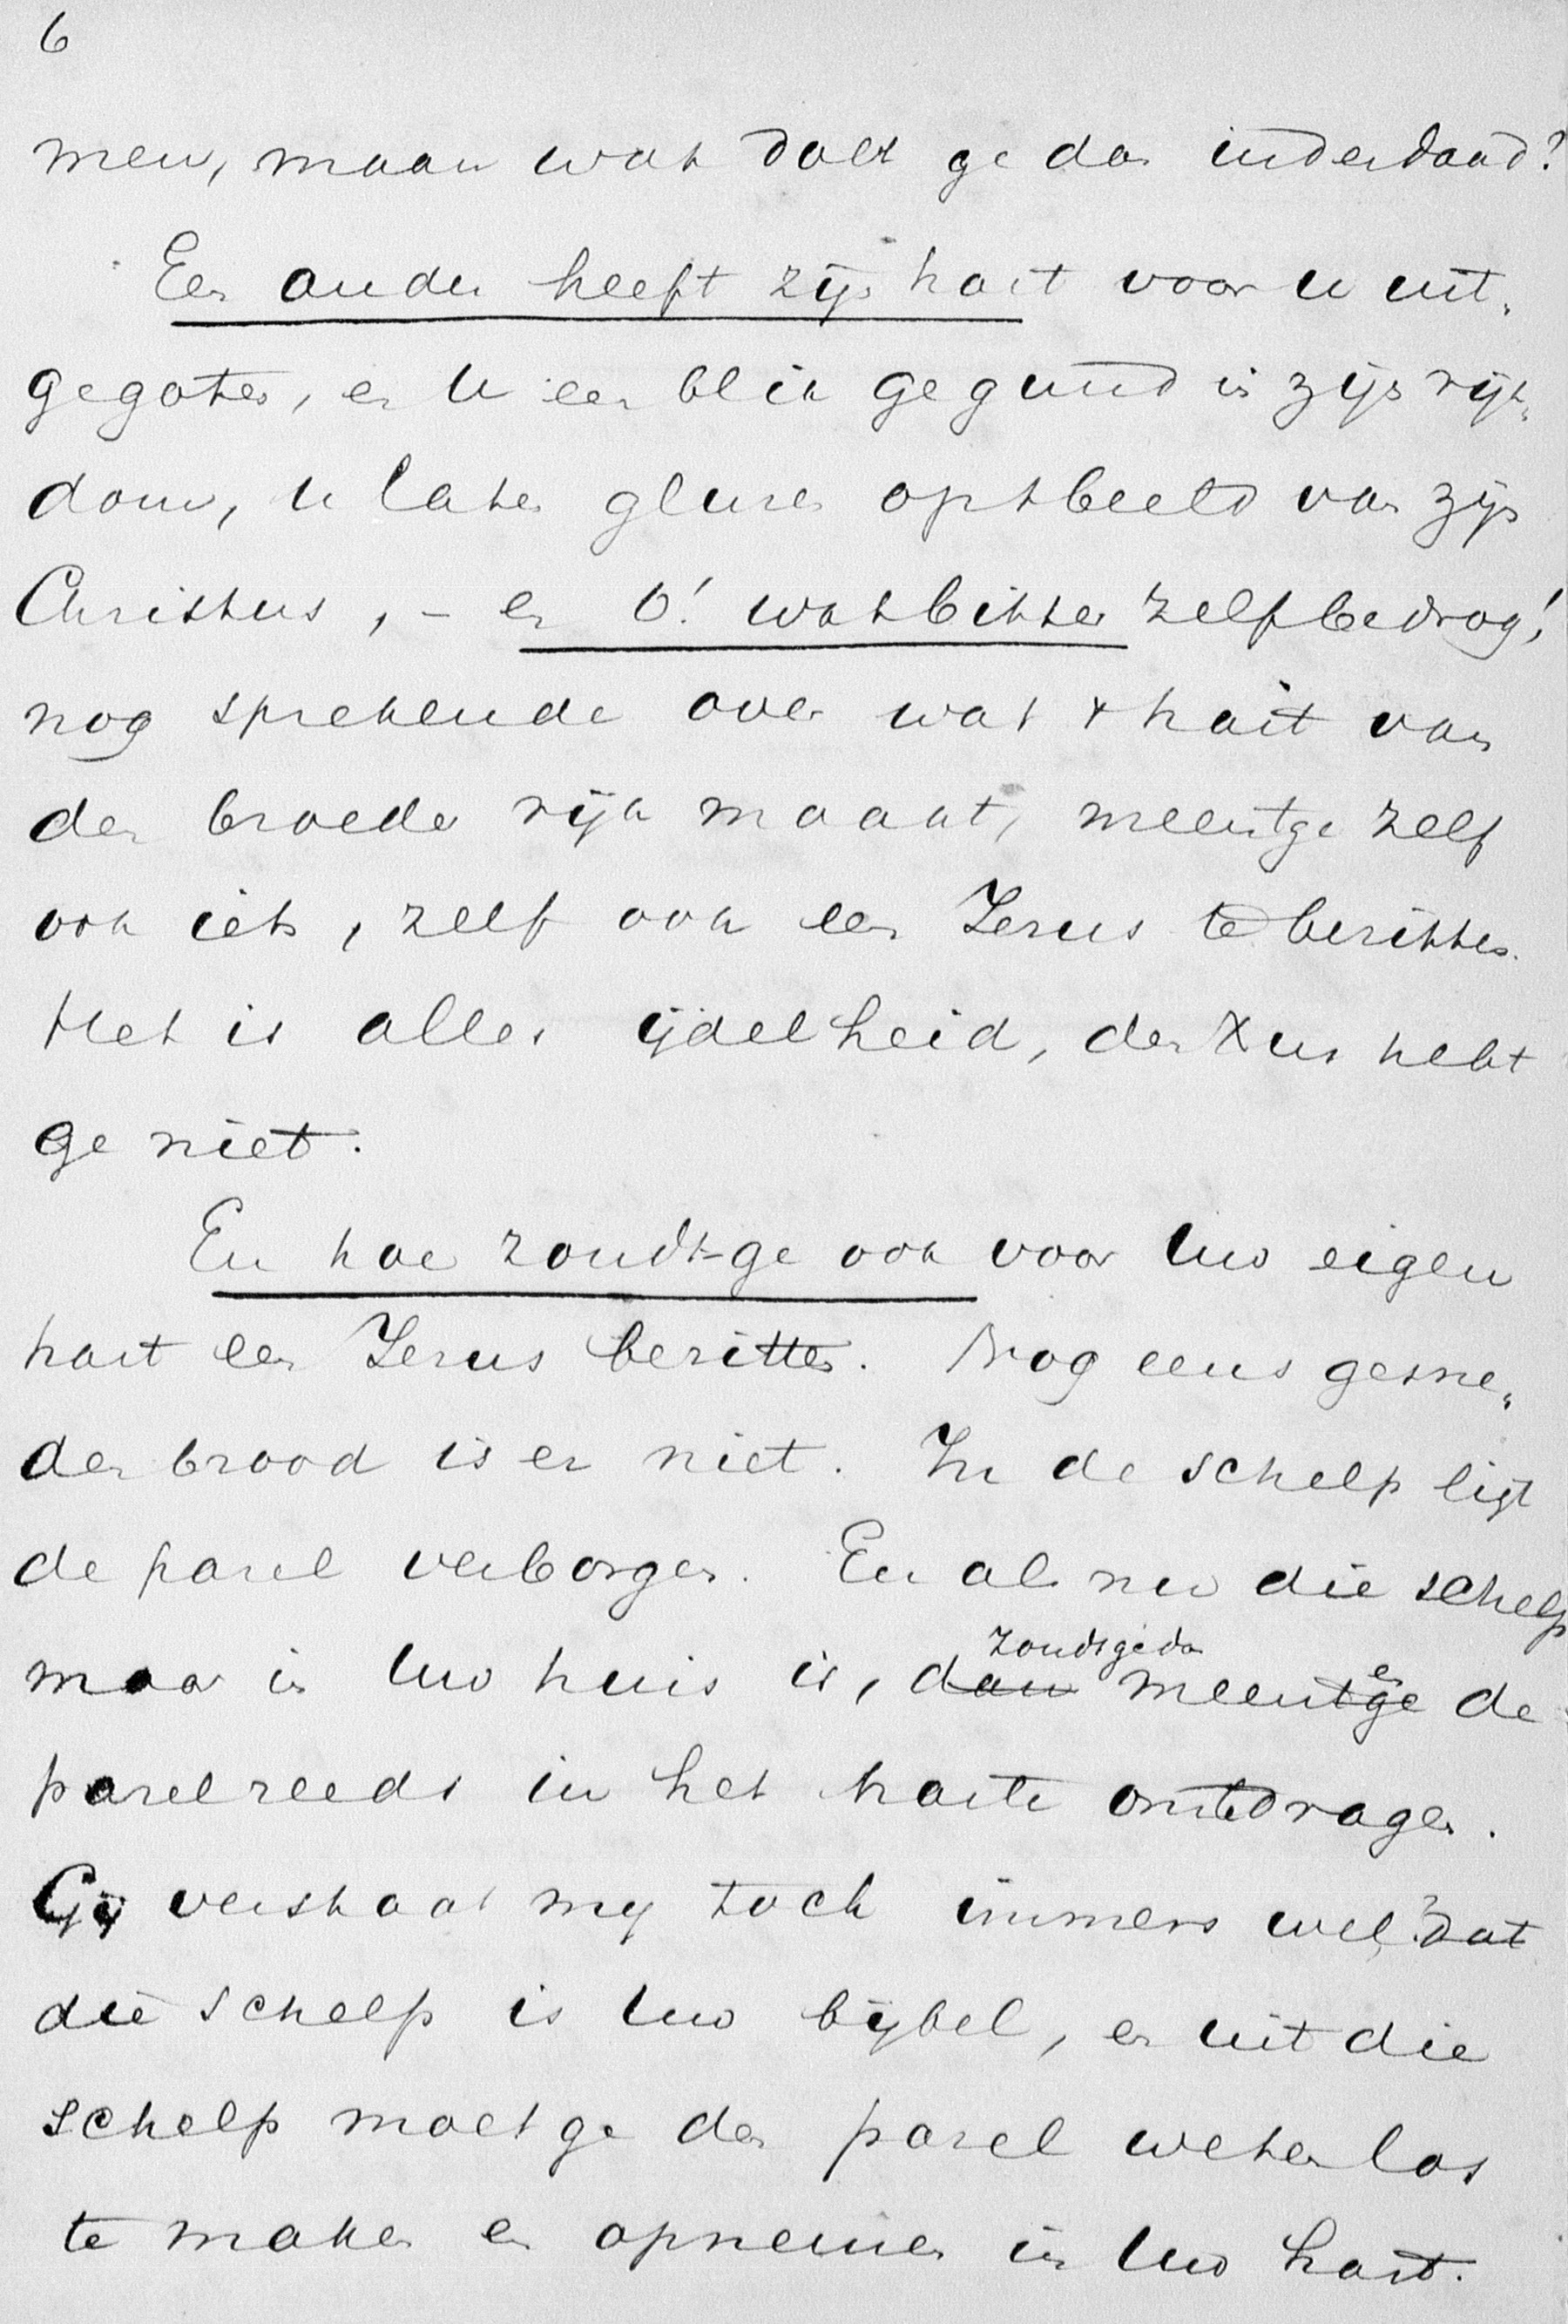 6
men, maar wat doet ge dan inderdaad?
Een ander heeft zijn hart voor u uit-
gegoten, en u een blik gegund in zijn rijk-
dom, u laten gluren op 't beeld van zijn
Christus, – en O! wat bitter zelfbedrog!
nog sprekende over wat 't hart van
den broeder rijk maakt, meent ge zelf
ook iets, zelf ook een Jezus te bezitten.
Het is alles ijdelheid, den Xus hebt
ge niet.
En hoe zoudt-ge ook voor Uw eigen
hart een Jezus bezitten. Nog eens gesne-
den brood is er niet. In de schelp ligt
de parel verborgen. En als nu die schelp
zoudt ge dan
maar in Uw huis is, dan meent ge en de
parel reeds in het harte omtedragen.
Gij verstaat mij toch immers wel? dat
die schelp is Uw bijbel, en uit die
schelp moet ge den parel weten los
te maken en opnemen in Uw hart.